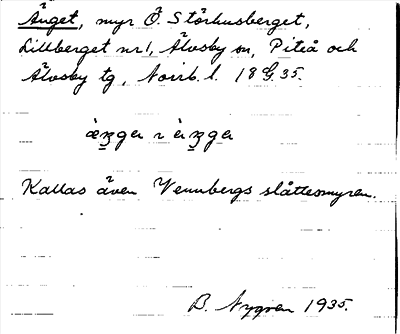 Änget, myr Ö. Storhusberget,
Lillberget nr 1, Älvsby sn, Piteå och
Älvsby tg, Norrb. l. 18 G 35.
Kallas även Vennbergs slåttesmyren.
B. Nygren 1935.